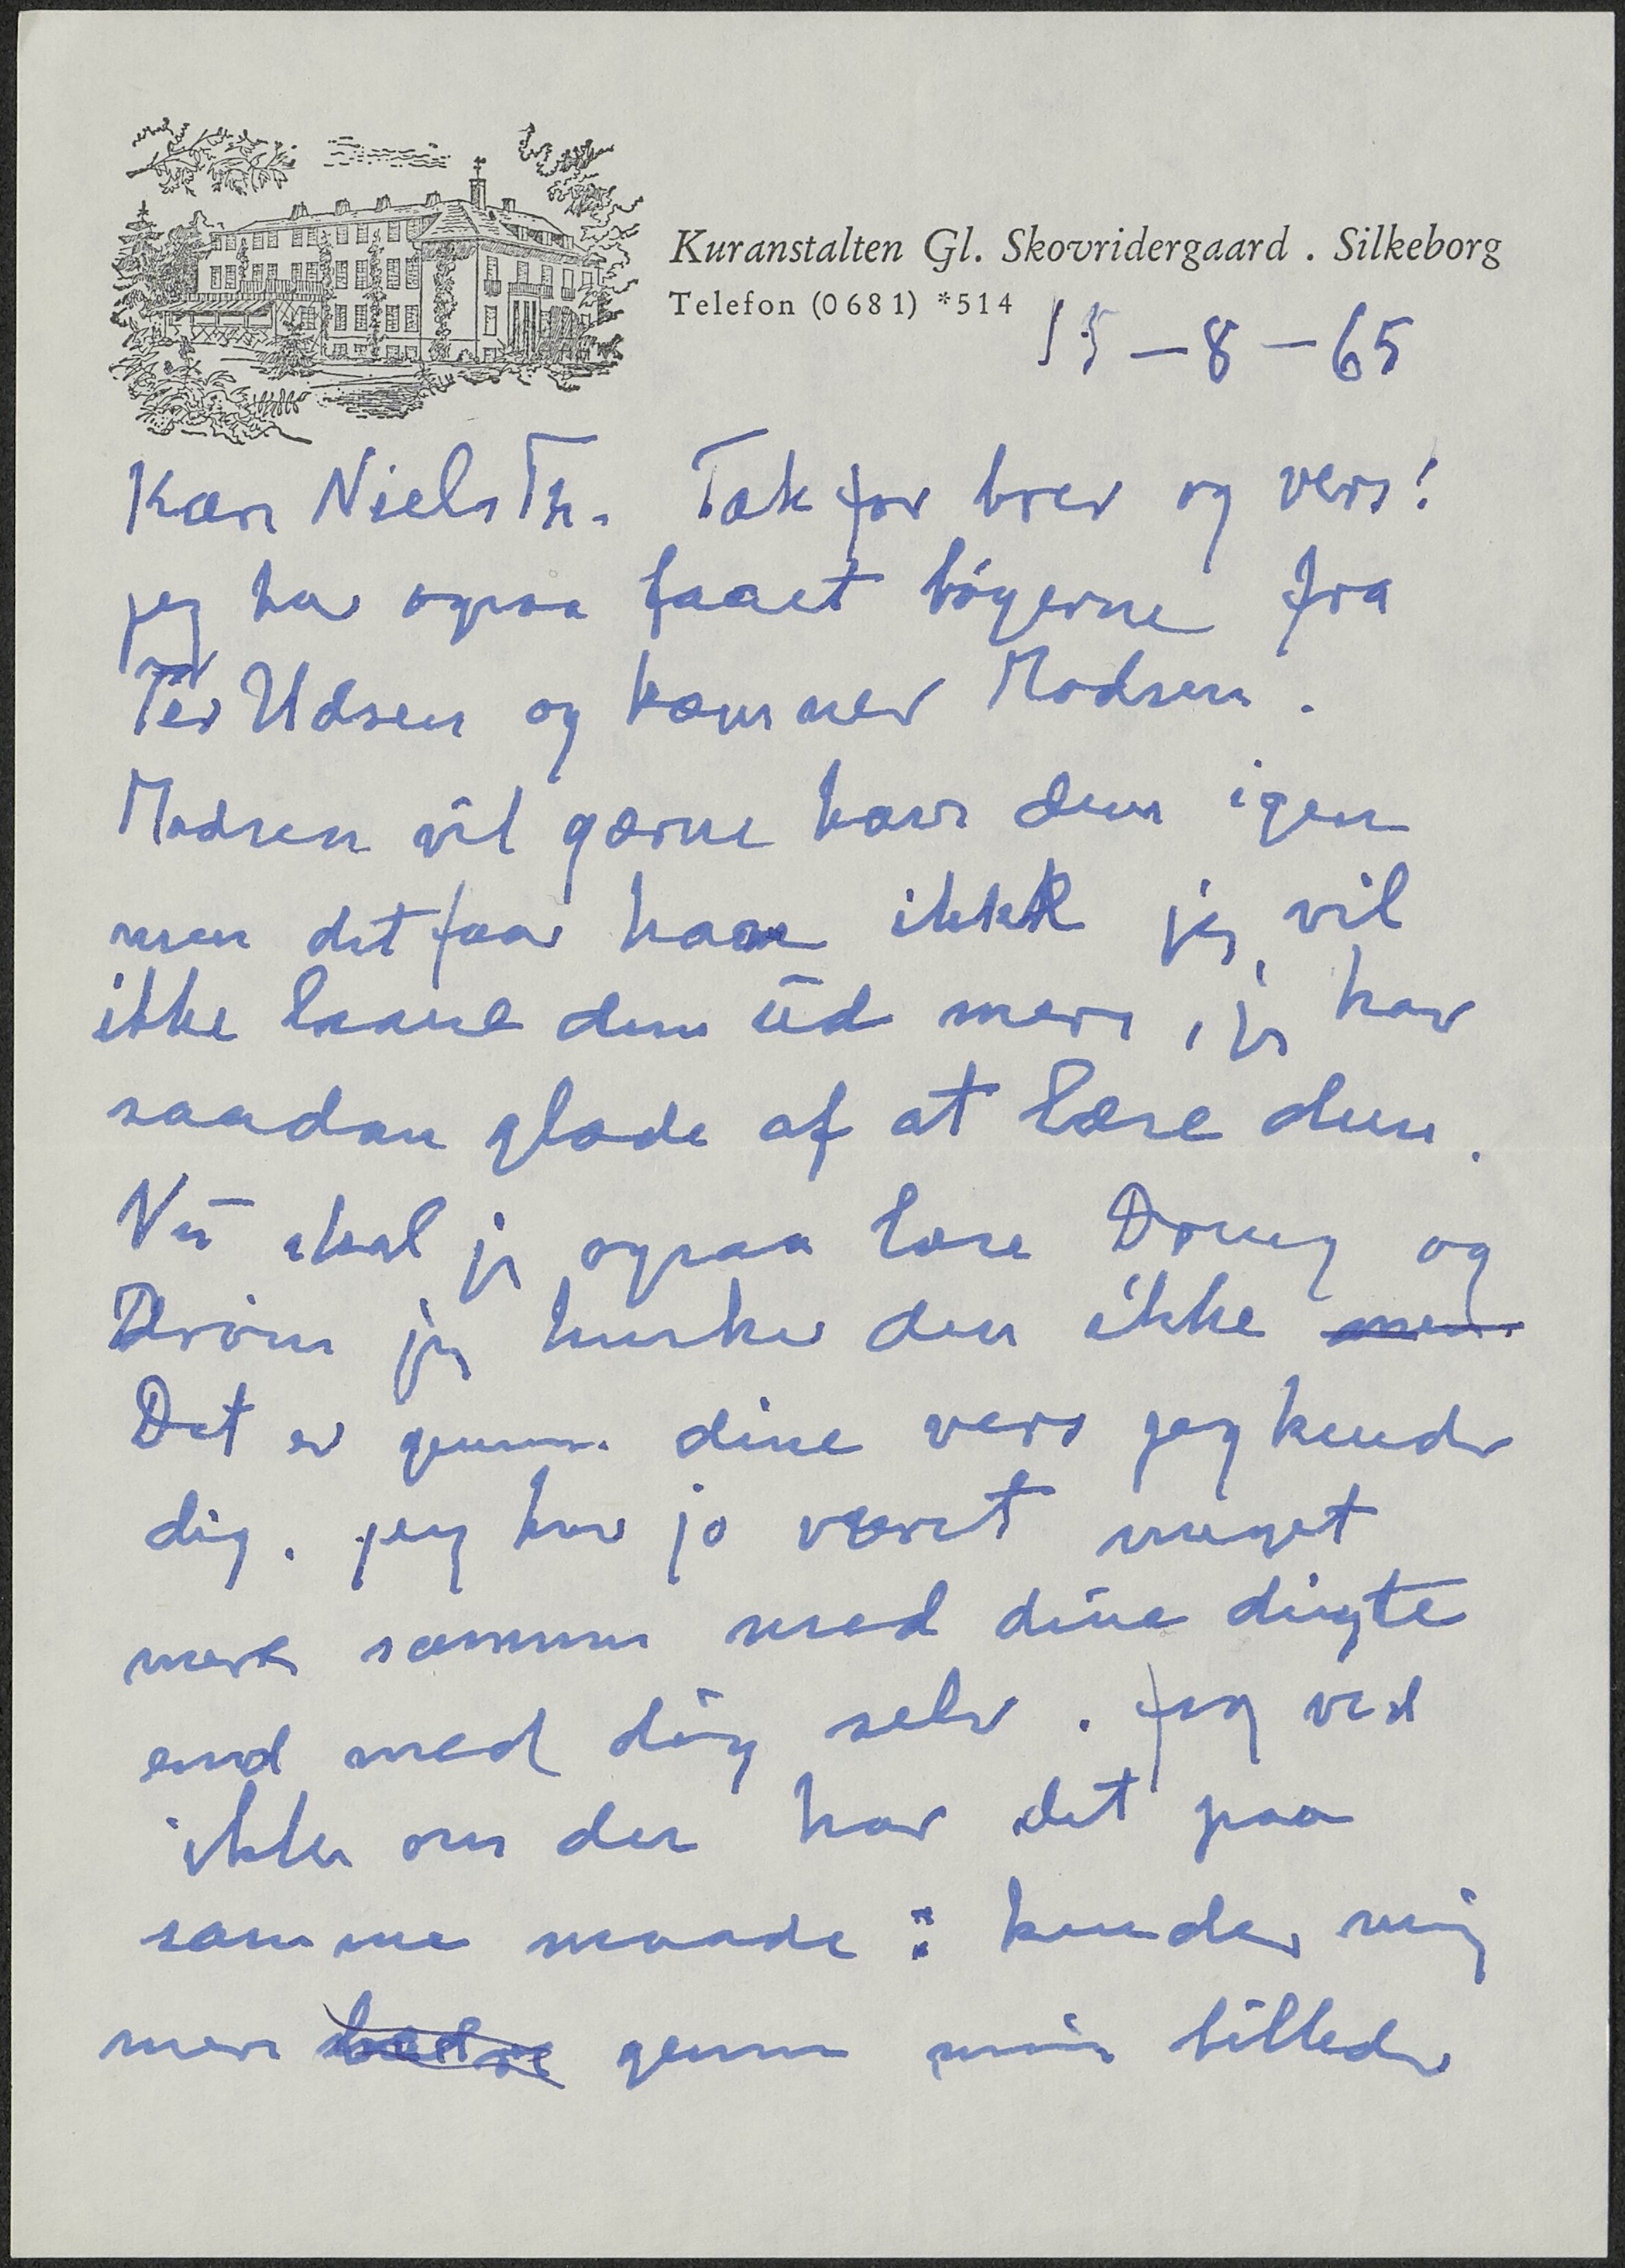 Kuranstalten Gl. Skovridergaard . Silkeborg
Telefon (0681) *514
15-8-65
Kære Niels Th. Tak for brev og vers!
jeg har ogsaa faaet bøgerne fra
Per Udsen og kommer Madsen.
Madsen vil gærne have dem igen
men det faar han ikke jeg vil
ikke laane dem ud mere, jeg har
saadan glæde af at læse dem.
Nu skal jeg ogsaa læse Dreng og
Drøm jeg husker den ikke men
Det er gennem dine vers jeg kender
dig. jeg har jo været meget
mere sammen med dine digte
end med dig selv. Jeg ved
ikke om du har det paa
samme maade : kender mig
mere bedre gennem mine billeder